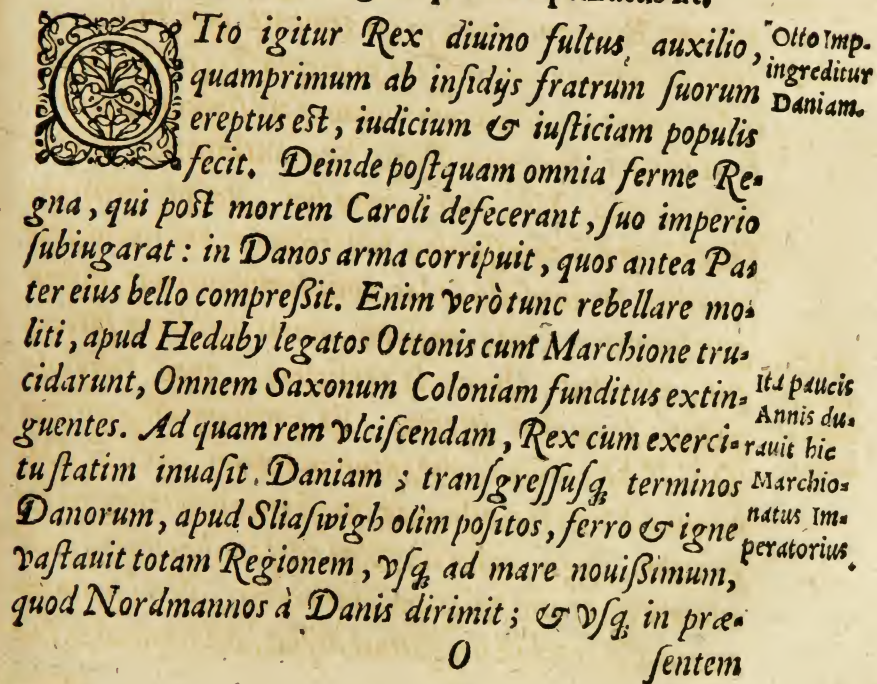 OTto igitur Rex diuino fultus, auxilio,
quamprimum ab insidijs fratrum suorum
ereptus est, iudicium & iusticiam populis
fecit. Deinde postquam omnia ferme Re=
gna, qui post mortem Caroli defecerant, suo imperio
subiugarat: in Danos arma corripuit, quos antea Pa=
ter eius bello compreßit. Enim verò tunc rebellare mo=
liti, apud Hedaby legatos Ottonis cum Marchione tru=
cidarunt, Omnem Saxonum Coloniam funditus extin=
guentes. Ad quam rem vlciscendam, Rex cum exerci=
tu statim inuasit. Daniam; transgressusq; terminos
Danorum, apud Sliaswigh olim positos, ferro & igne
vastauit totam Regionem, vsq; ad mare nouißimum,
quod Nordmannos à Danis dirimit; & vsq; in præ=
O sentem
Otto Imp.
ingreditur
Daniam.
Ita paucis
Annis du=
rauit hic
Marchio=
natus Im=
peratorius.